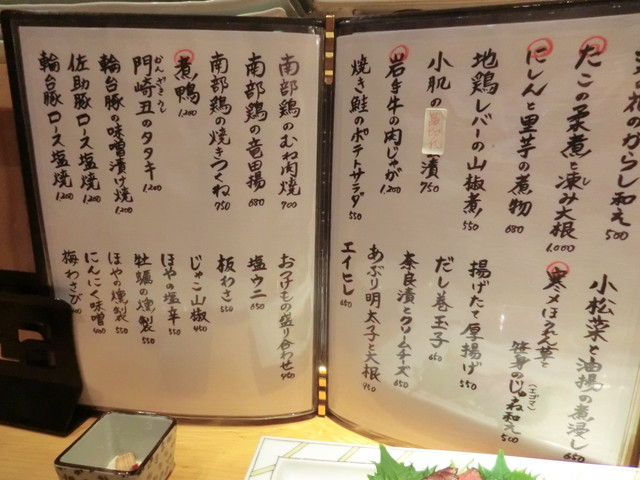 菜の花のからし和え 500
たこの柔煮と凍み大根 1,000
にしんと里芋の煮物 680
地鶏レバーの山椒煮 550
小肌の
漬 750
岩手牛の肉じゃが 1,200
焼き鮭のポテトサラダ 550
小松菜と油揚の煮浸し 650
寒〆ほうれん草と
(エゴマ)
じゅね和え 500
揚げたて厚揚げ 550
だし巻玉子 650
奈良漬とクリームチーズ 650
あぶり明太子と大根 950
エイヒレ 650
南部鶏のむね肉焼 900
南部鶏の竜田揚 680
南部鶏の焼きつくね 750
煮鴨 1,200
かんざきうし
門崎丑のタタキ 1,200
輪台豚の味噌漬け焼 1,200
佐助豚ロース塩焼 1,200
輪台豚ロース塩焼 1,200
おつけもの盛り合わせ 450
塩ウニ 650
板わさ 550
じゃこ山椒 450
ほやの塩辛 550
牡蠣の燻製 550
ほやの燻製 550
にんにく味噌 400
梅わさび 400